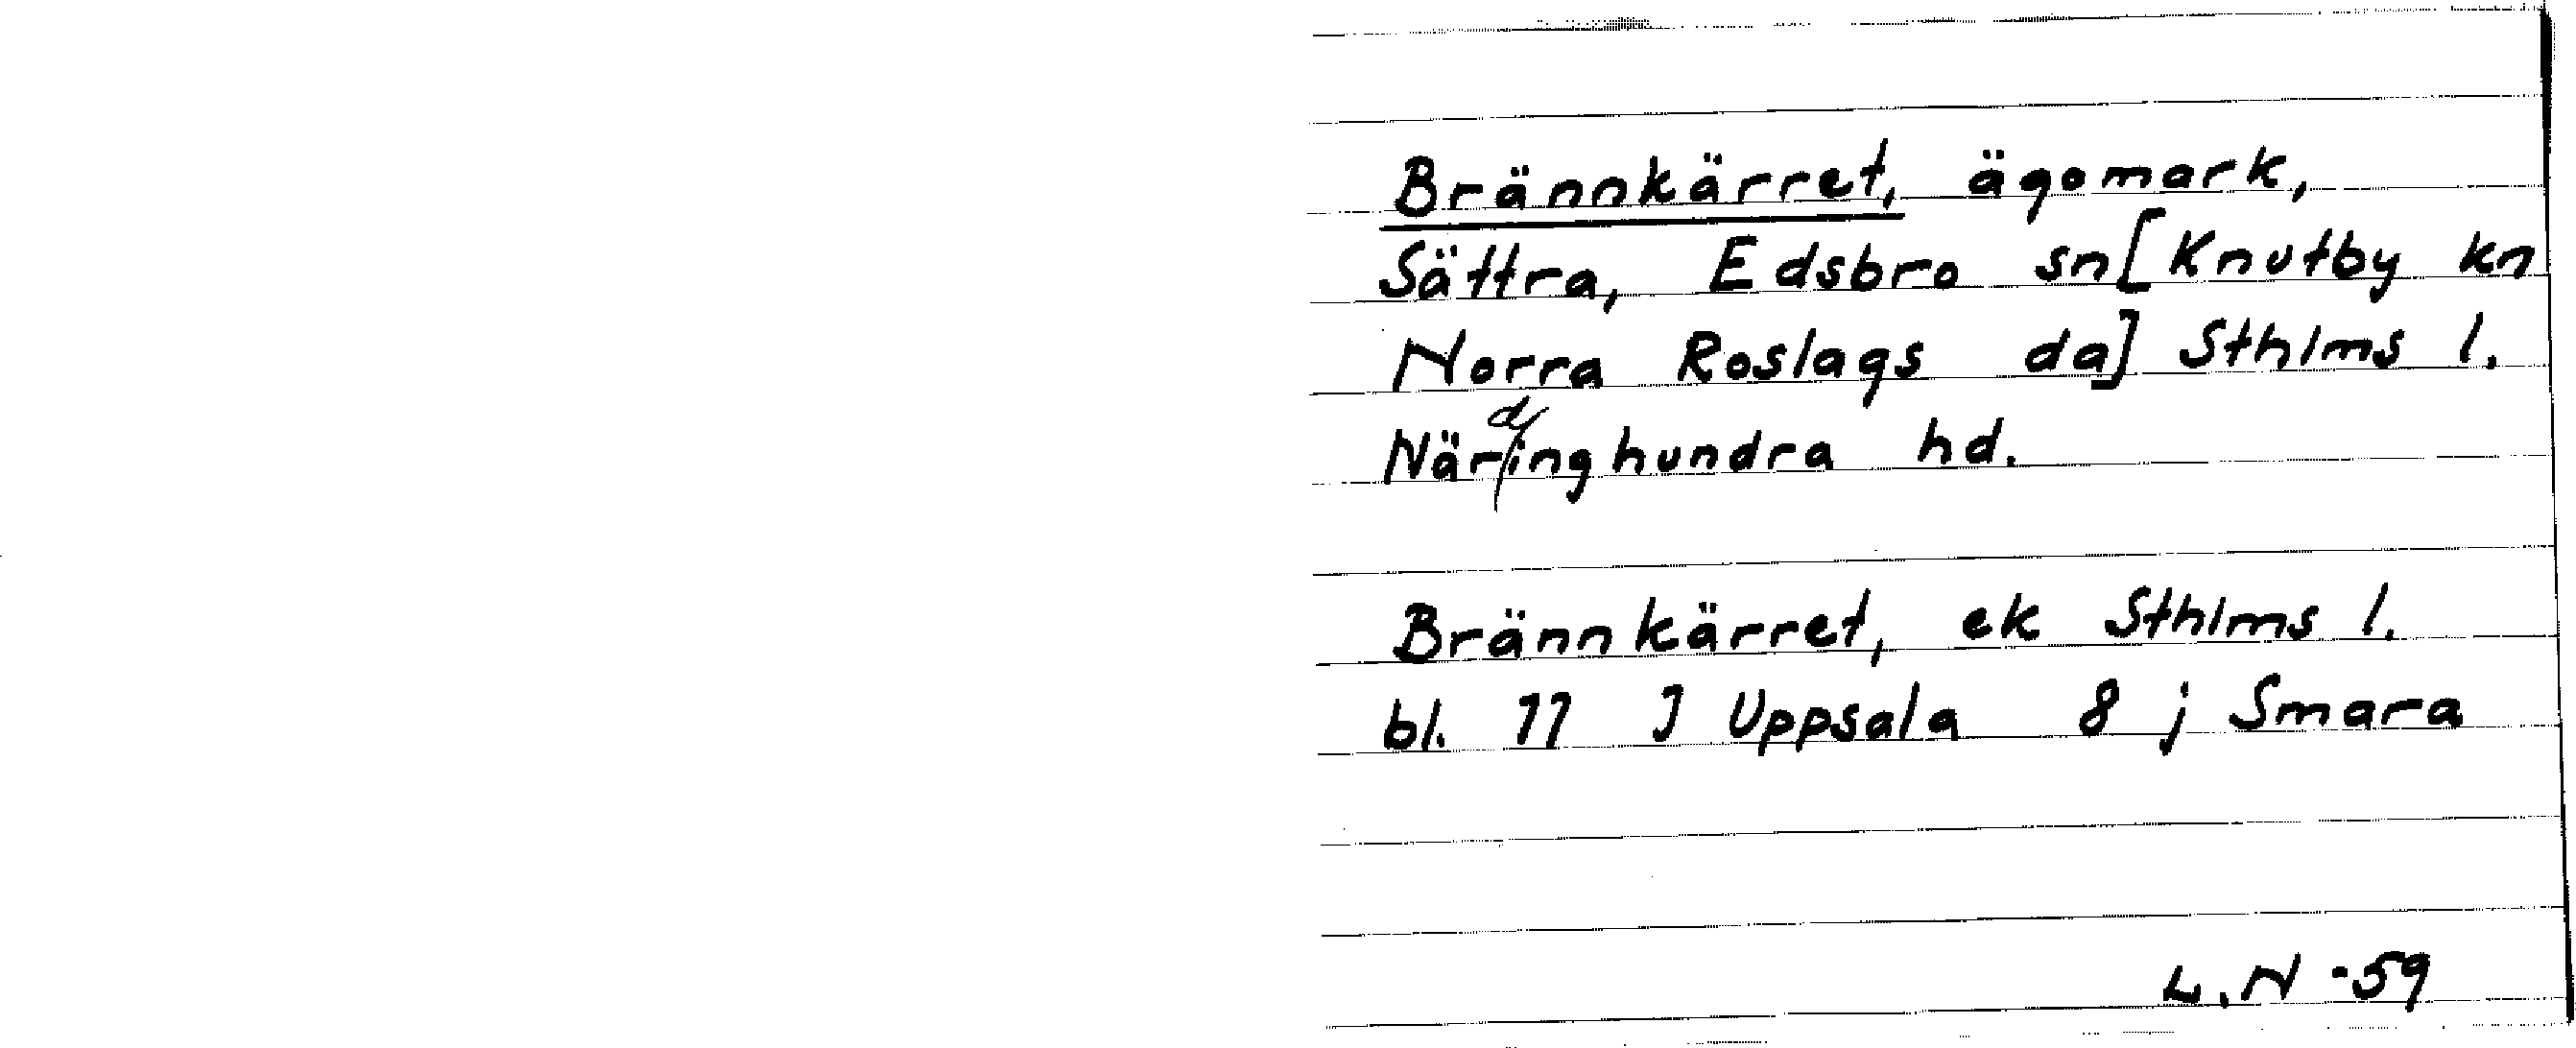 Brännkärret, ägomark,
Sättra, Edsbro sn [Knutby kn
Norra Roslags da] Sthlms l.
Närdinghundra hd.
Brännkärret, ek Sthlms l.
bl. 11 I Uppsala 8 j Smara
L.N -59